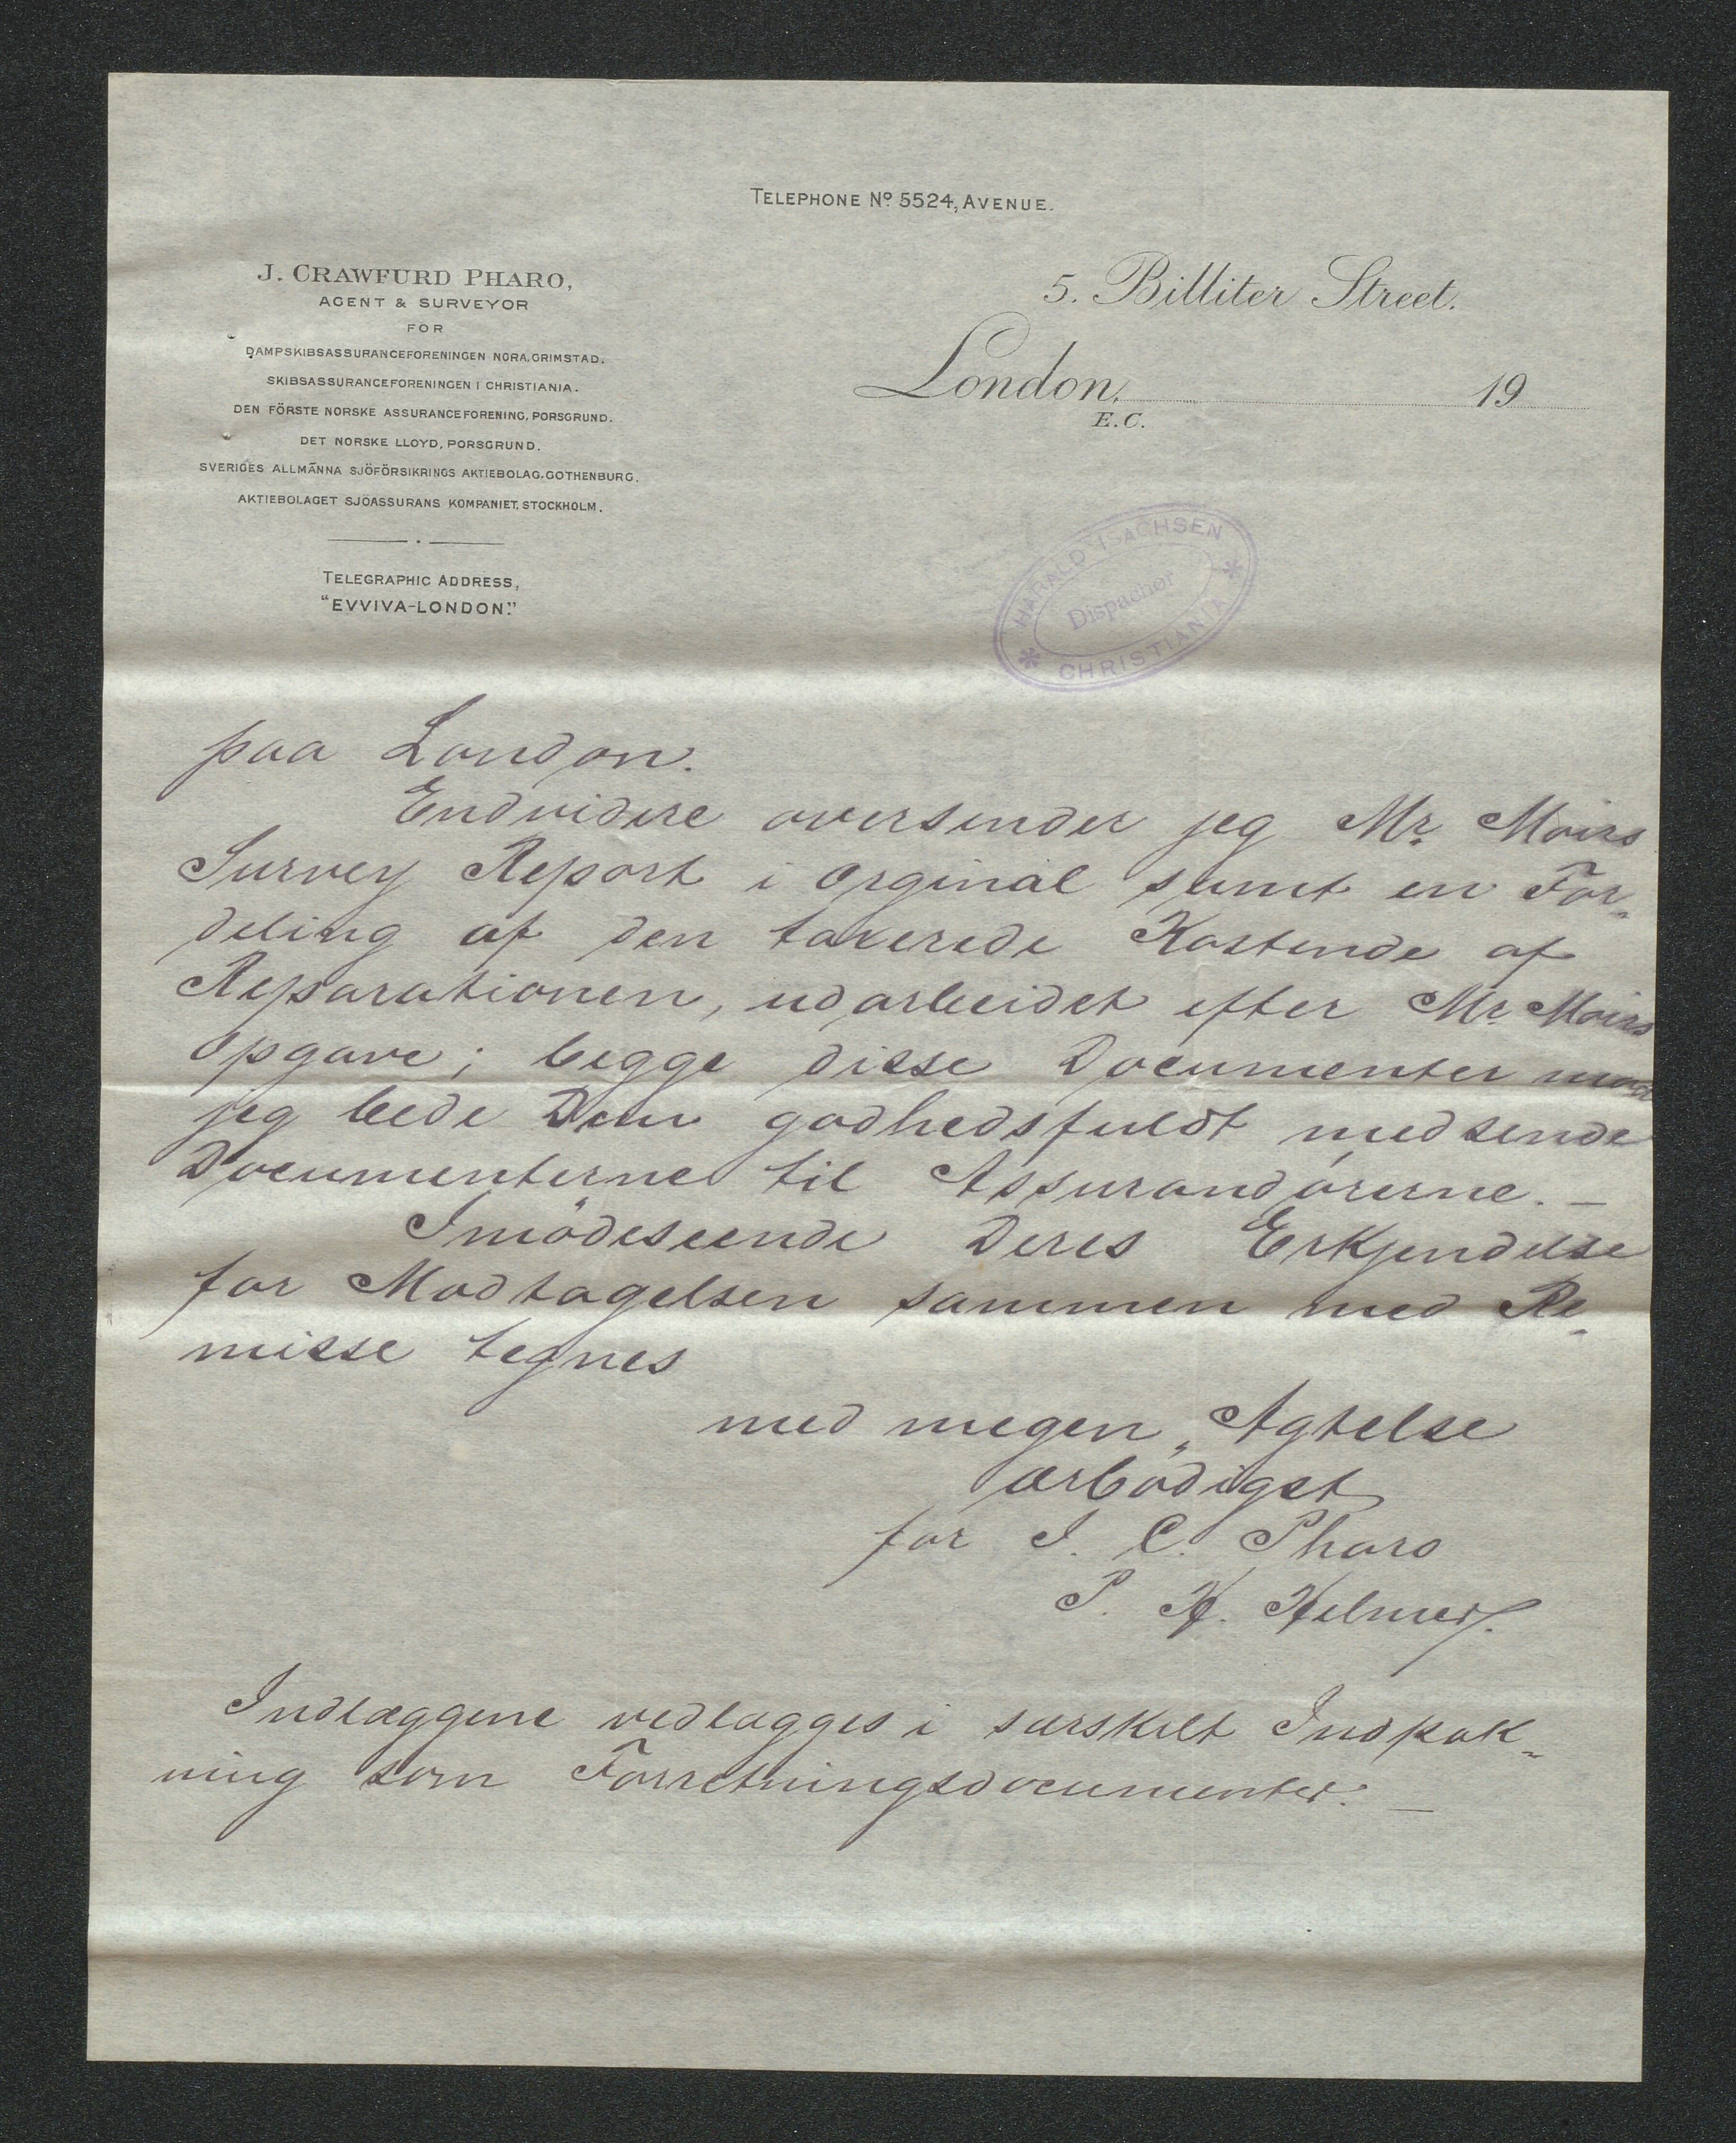 TELEPHONE Nº 5524, AVENUE.
J. CRAWFURD PHARO,
AGENT & SURVEYOR
FOR
DAMPSKIBSASSURANCEFORENINGEN NORA, GRIMSTAD.
SKIBSASSURANCEFORENINGEN I CHRISTIANIA.
DEN FÖRSTE NORSKE ASSURANCEFORENING, PORSGRUND.
DET NORSKE LLOYD, PORSGRUND.
SVERIGES ALLMÄNNA SJÖFÖRSIKRINGS AKTIEBOLAG, GOTHENBURG.
AKTIEBOLAGET SJÖASSURANS KOMPANIET, STOCKHOLM.
TELEGRAPHIC ADDRESS,
"EVVIVA-LONDON."
5. Billiter Street.
London, 19
E.C.
HARALD ISACHSEN
Dispachør
CHRISTIANIA
paa London.
Endvidere oversender jeg Mr. Moirs
Survey Report i Orginal samt en For-
deling af den taxerede Kostende af
Reparationen, udarbeidet efter Mr. Moirs
Opgave; begge disse Documenter maa
jeg bede Dem godhedsfuldt medsende
Documenterne til Assurandörerne. —
Imödeseende Deres Erkjendelse
for Modtagelsen sammen med Re-
misse tegnes
med megen Agtelse
ærbödigst
for J. C. Pharo
P. H. Helmers.
Indlæggene vedlægges i særskilt Indpak-
ning som Forretningsdocumenter. —